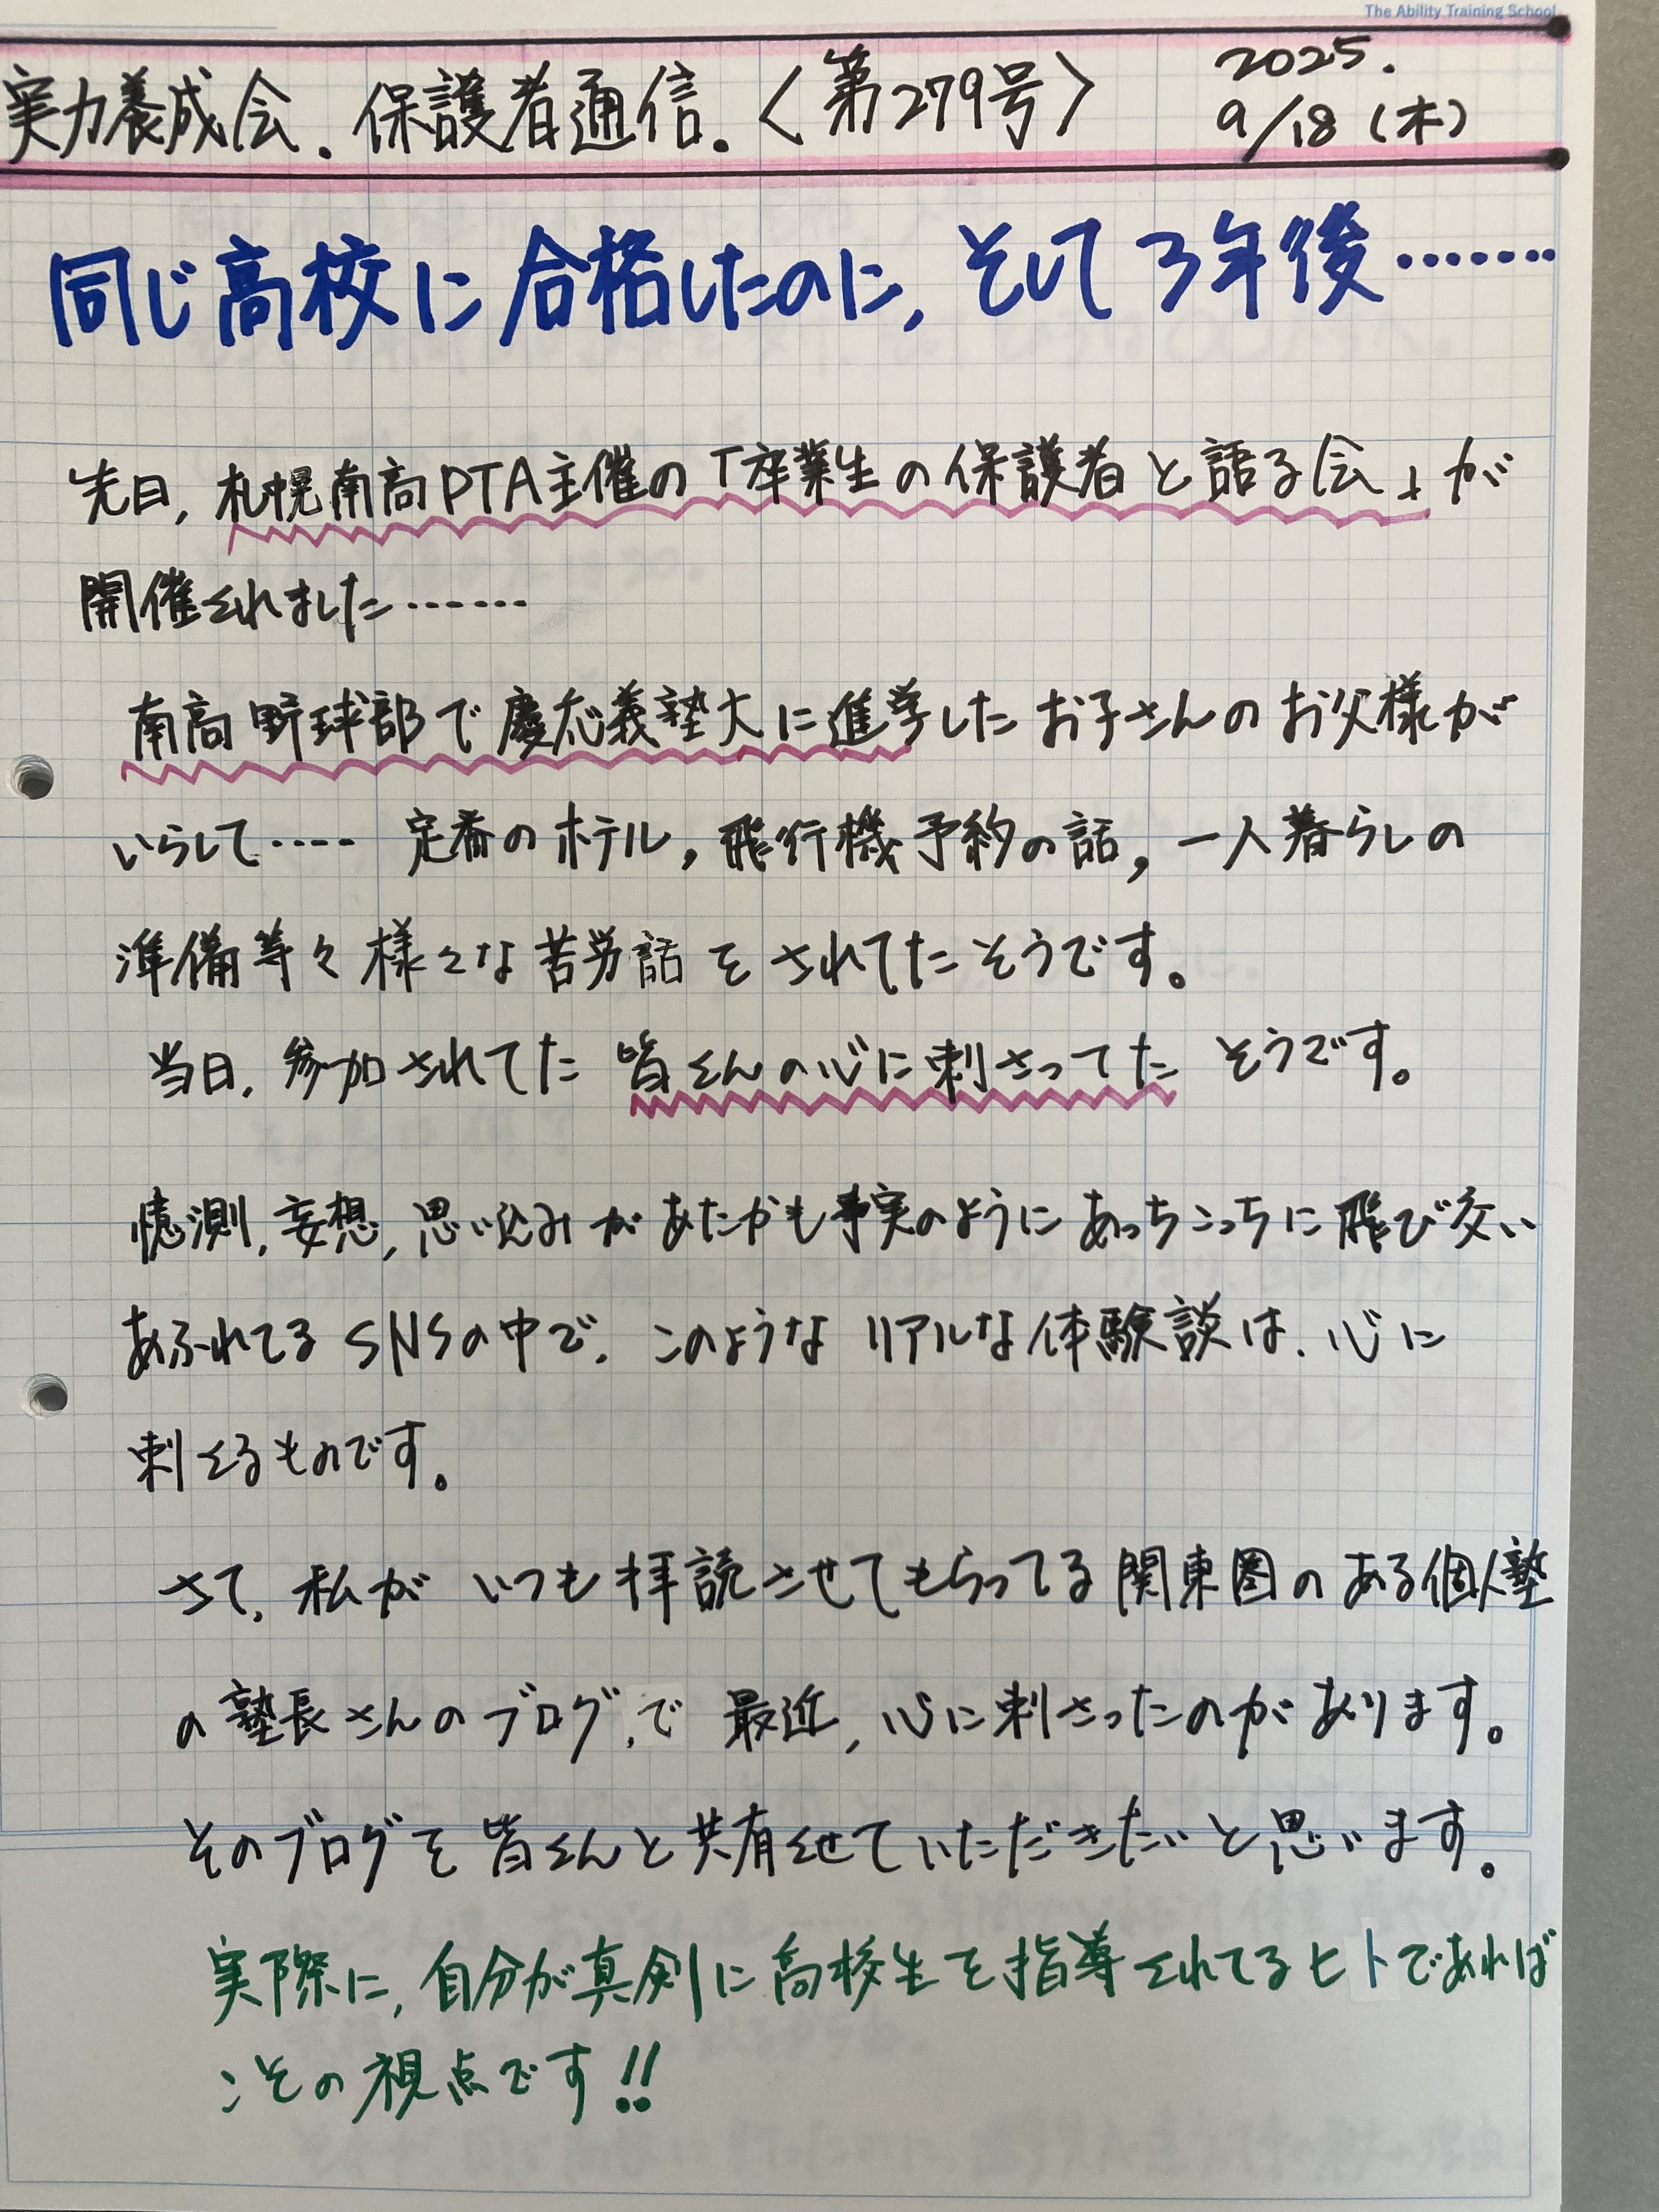 The Ability Training School
実力養成会.保護者通信.〈第279号〉
2025.
9/18(木)
同じ高校に合格したのに,そして3年後・・・・・・・
先日,札幌南高PTA主催の「卒業生の保護者と語る会」が
開催されました・・・・・・・
南高野球部で慶応義塾大に進学したお子さんのお父様が
いらして・・・・ 定番のホテル,飛行機予約の話,一人暮らしの
準備等々様々な苦労話をされてたそうです。
当日,参加されてた皆さんの心に刺さってたそうです。
憶測,妄想,思い込みがあたかも事実のようにあっちこっちに飛び交い
あふれてるSNSの中で,このようなリアルな体験談は,心に
刺さるものです。
さて,私がいつも拝読させてもらってる関東圏のある個人塾
の塾長さんのブログで最近,心に刺さったのがあります。
そのブログを皆さんと共有させていただきたいと思います。
実際に,自分が真剣に高校生を指導されてるヒトであれば
こその視点です!!